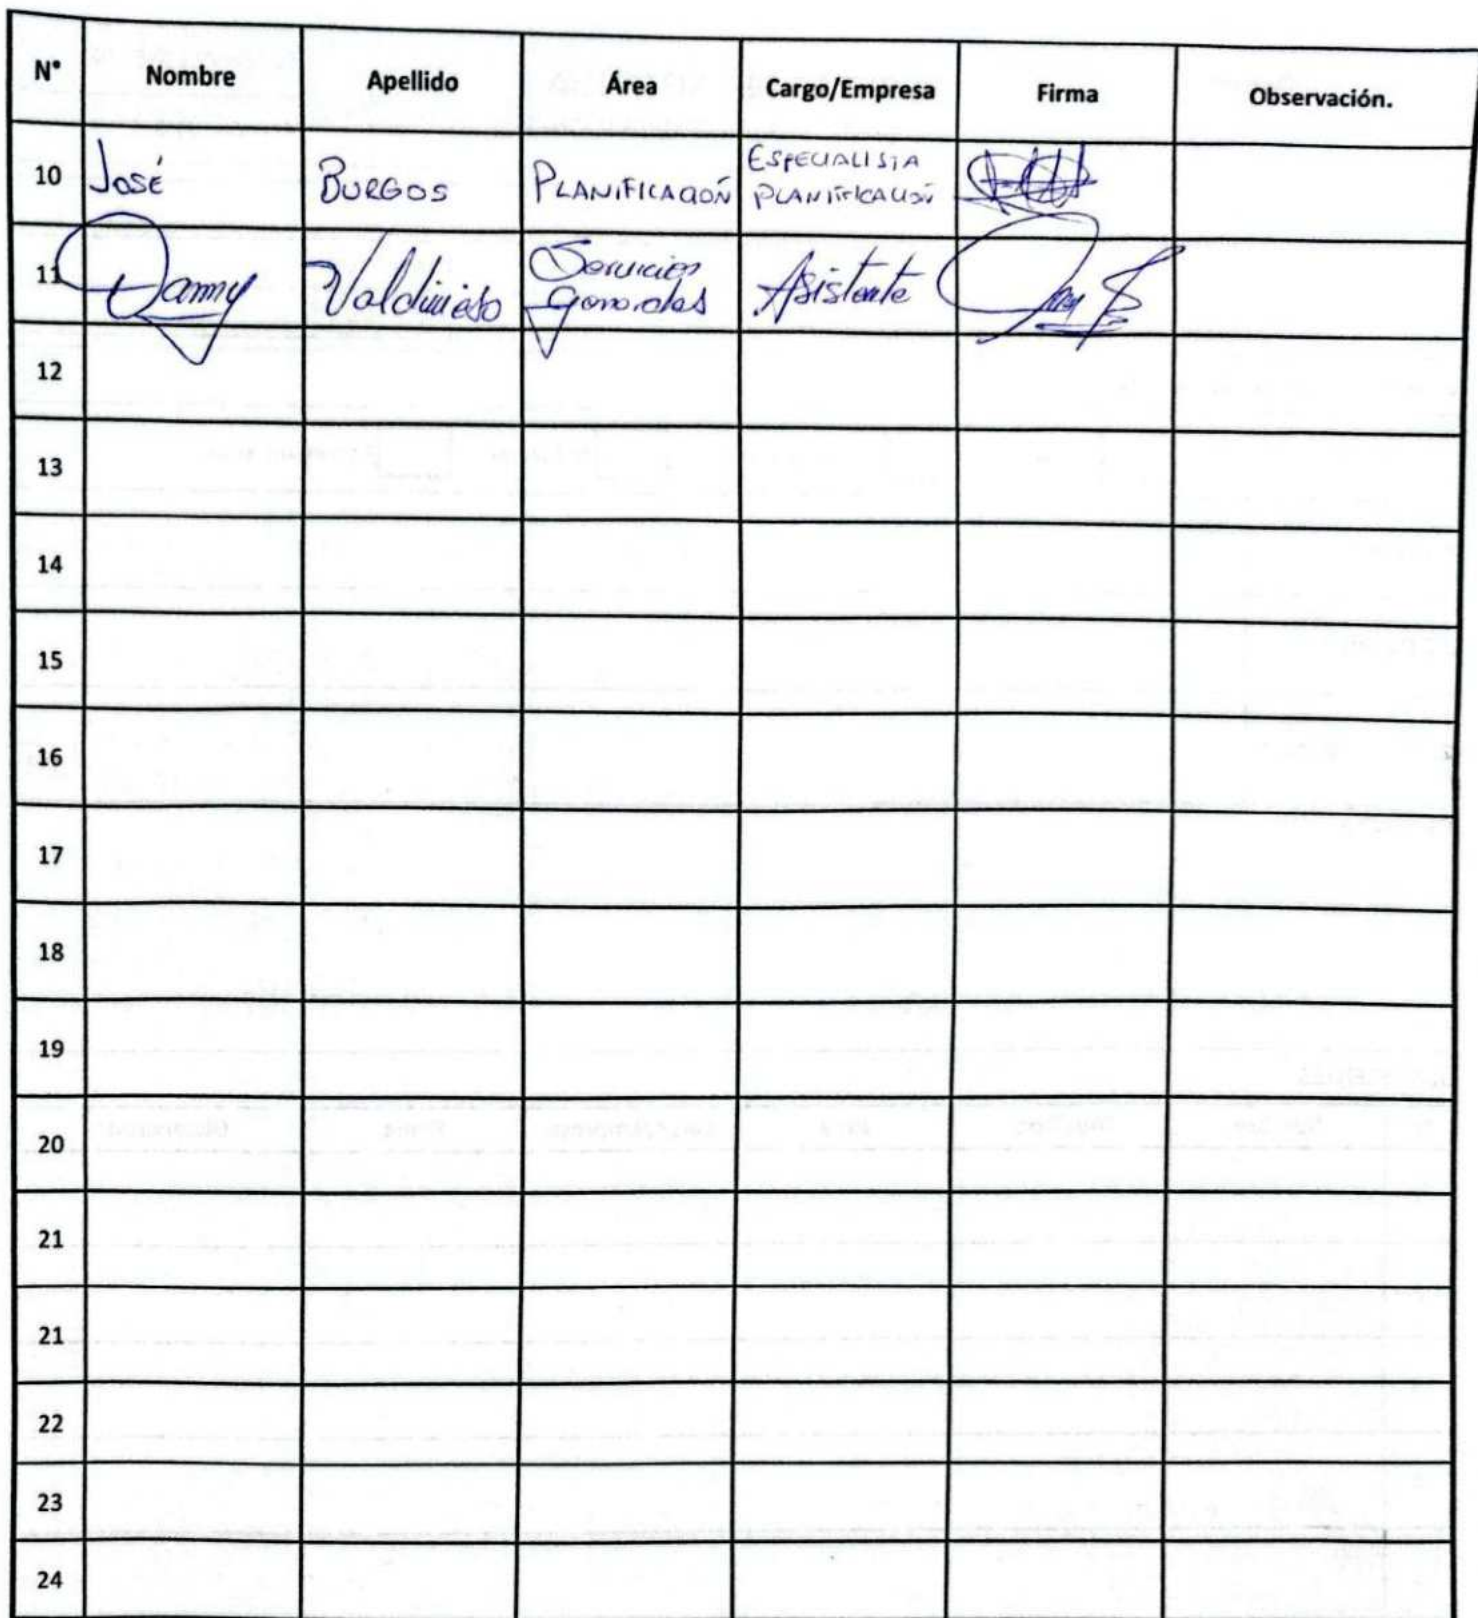 N° Nombre Apellido Área Cargo/Empresa Firma Observación.
10 José BURGOS PLANIFICACIÓN ESPECIALISTA PLANIFICACIÓN
11 Danny Valdivieso Servicios Generales Asistente
12
13
14
15
16
17
18
19
20
21
21
22
23
24